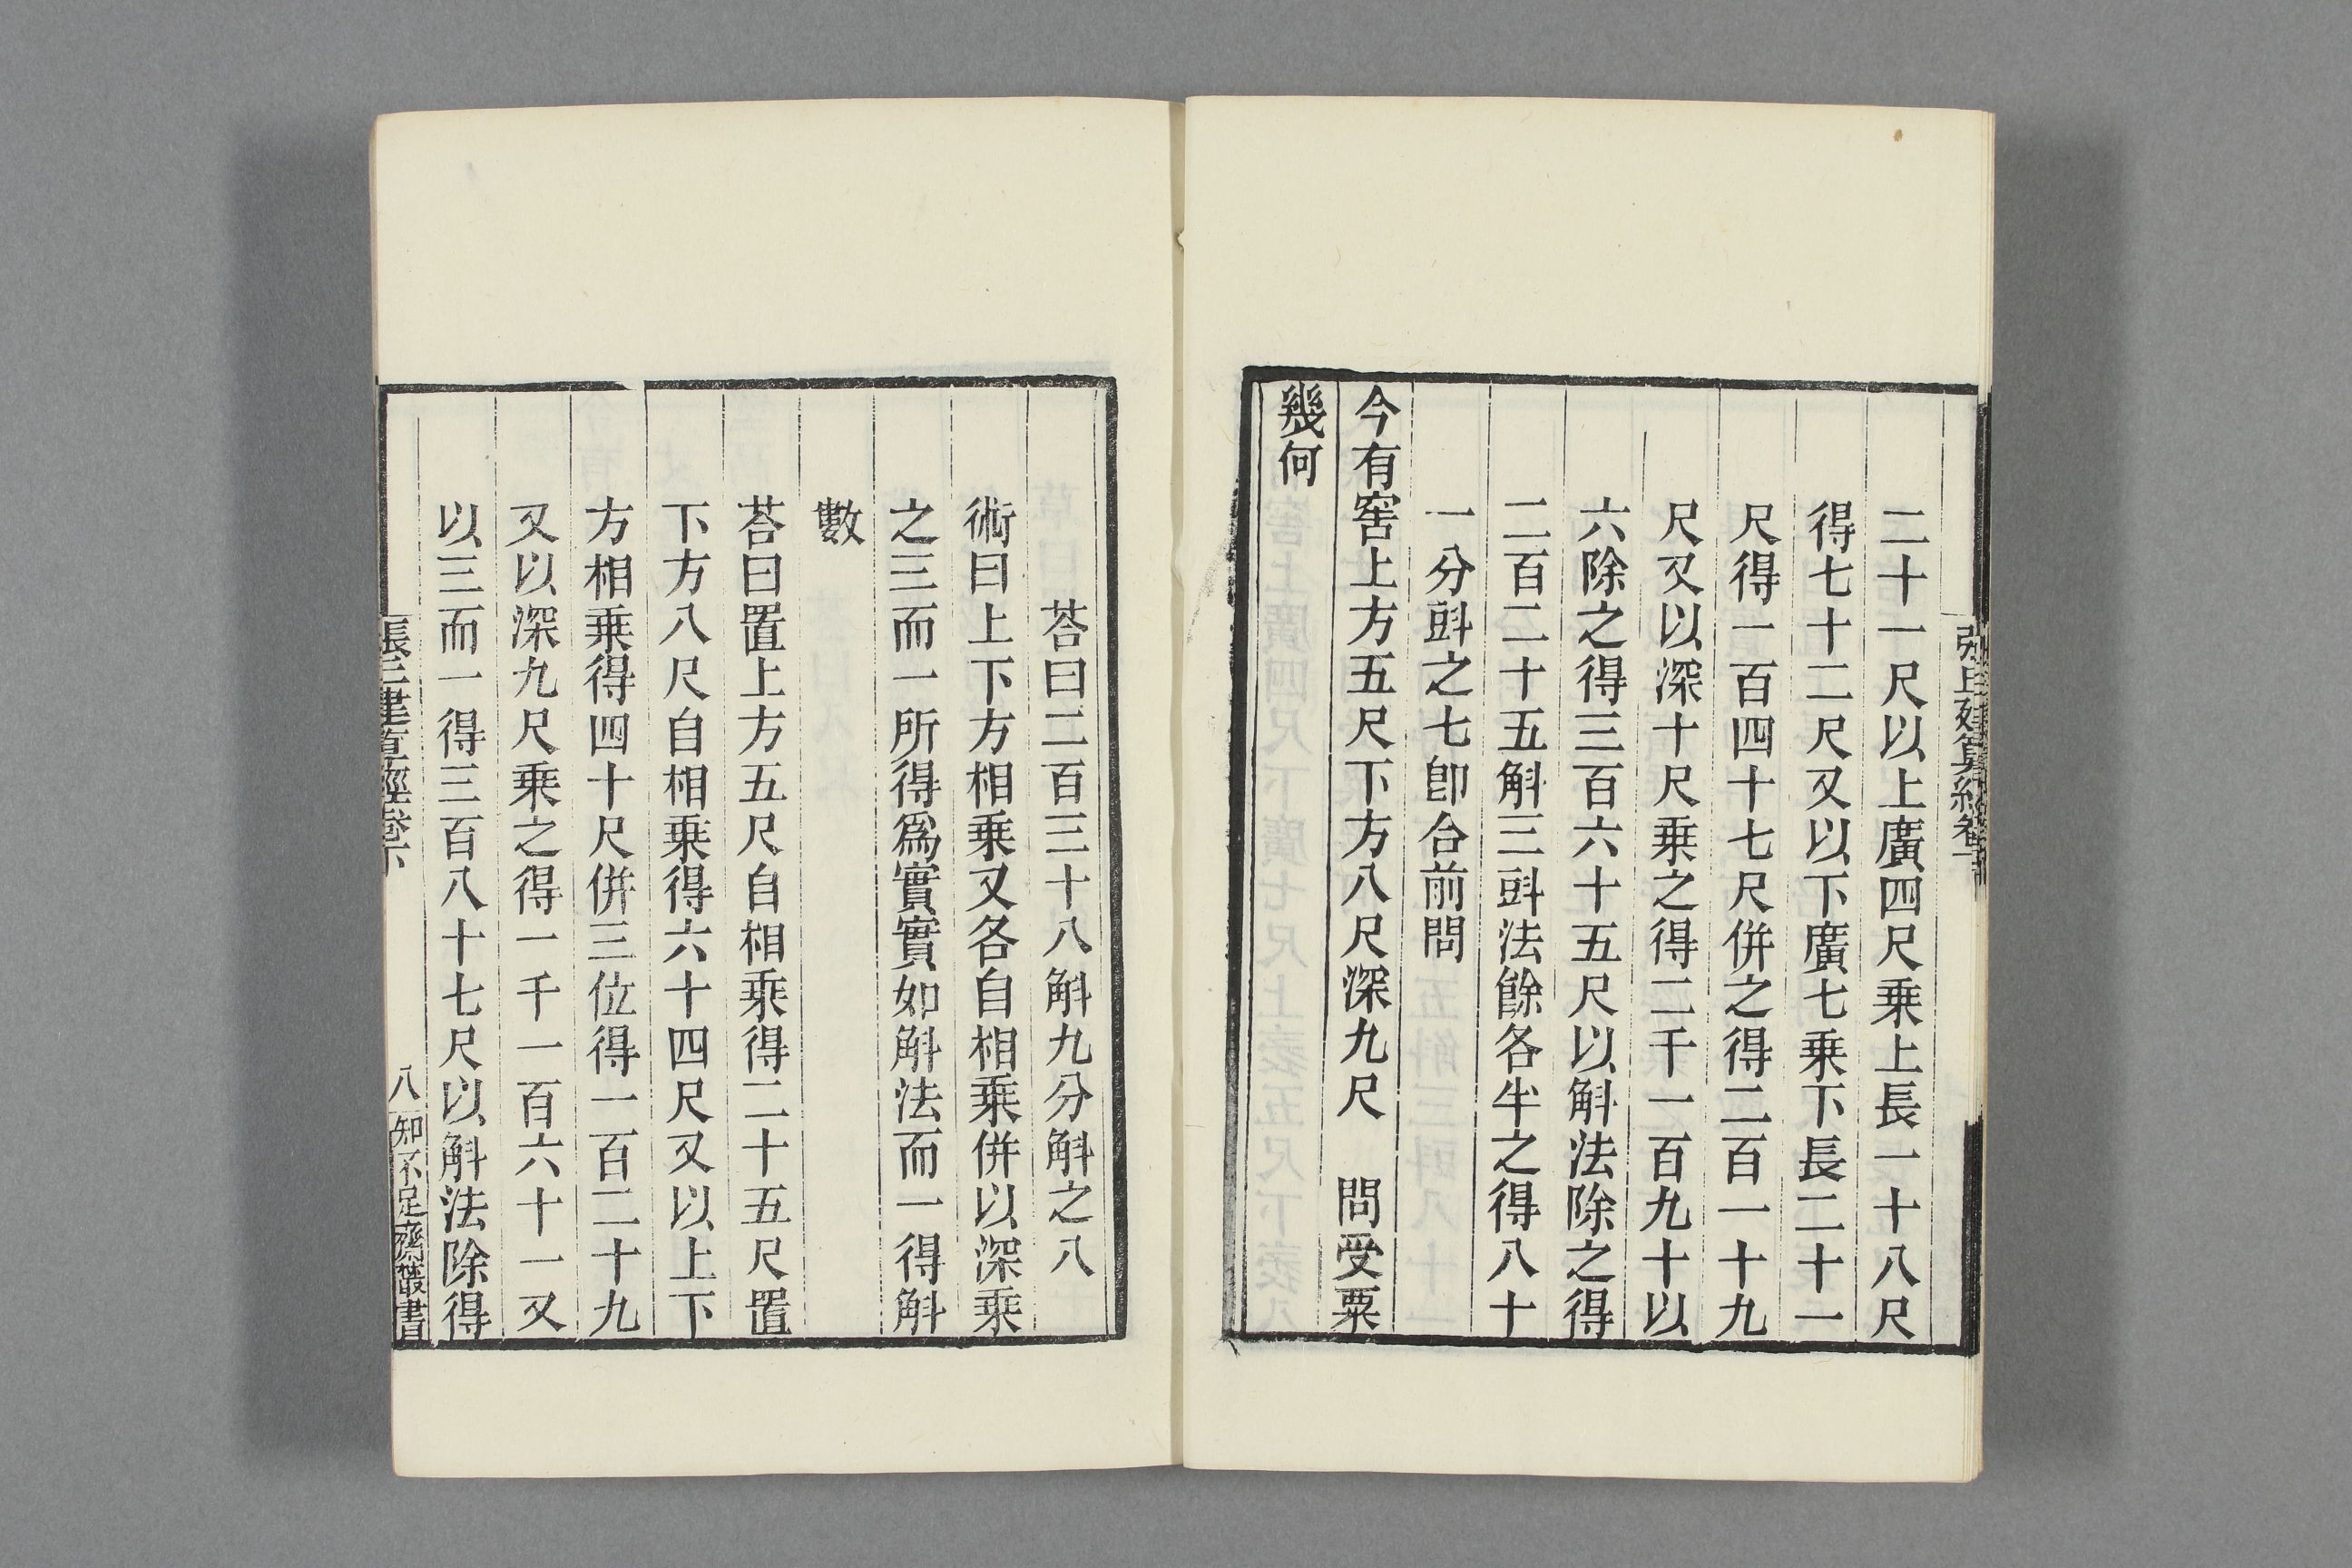 二十一尺以上廣四尺乘上長一十八尺
得七十二尺又以下廣七乘下長二十一
尺得一百四十七尺併之得二百一十九
尺又以深十尺乘之得二千一百九十以
六除之得三百六十五尺以斛法除之得
二百二十五斛三㪷法餘各半之得八十
一分㪷之七卽合前問
今有窖上方五尺下方八尺深九尺　問受粟
幾何
荅曰二百三十八斛九分斛之八
術曰上下方相乘又各自相乘併以深乘
之三而一所得爲實實如斛法而一得斛
數
荅曰置上方五尺自相乘得二十五尺置
下方八尺自相乘得六十四尺又以上下
方相乘得四十尺併三位得一百二十九
又以深九尺乘之得一千一百六十一又
以三而一得三百八十七尺以斛法除得
張丘建算經卷下
八
知不足齋叢書